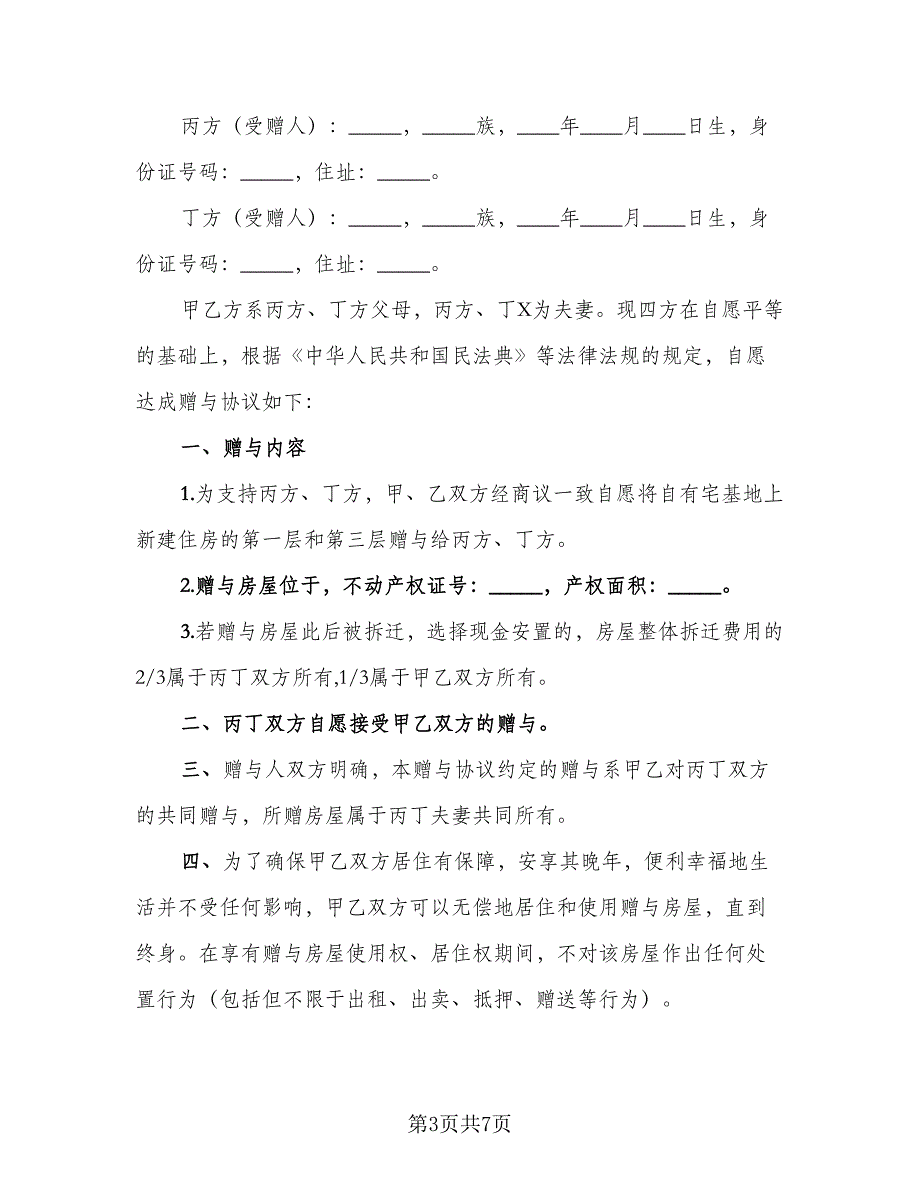 丙方（受赠人）：_____，_____族，____年____月____日生，身
份证号码：_____，住址：_____。
丁方（受赠人）：_____，_____族，____年____月____日生，身
份证号码：_____，住址：_____。
甲乙方系丙方、丁方父母，丙方、丁X为夫妻。现四方在自愿平等
的基础上，根据《中华人民共和国民法典》等法律法规的规定，自愿
达成赠与协议如下：
一、赠与内容
1.为支持丙方、丁方，甲、乙双方经商议一致自愿将自有宅基地上
新建住房的第一层和第三层赠与给丙方、丁方。
2.赠与房屋位于，不动产权证号：_____，产权面积：_____。
3.若赠与房屋此后被拆迁，选择现金安置的，房屋整体拆迁费用的
2/3属于丙丁双方所有,1/3属于甲乙双方所有。
二、丙丁双方自愿接受甲乙双方的赠与。
三、赠与人双方明确，本赠与协议约定的赠与系甲乙对丙丁双方
的共同赠与，所赠房屋属于丙丁夫妻共同所有。
四、为了确保甲乙双方居住有保障，安享其晚年，便利幸福地生
活并不受任何影响，甲乙双方可以无偿地居住和使用赠与房屋，直到
终身。在享有赠与房屋使用权、居住权期间，不对该房屋作出任何处
置行为（包括但不限于出租、出卖、抵押、赠送等行为）。
第3页共7页